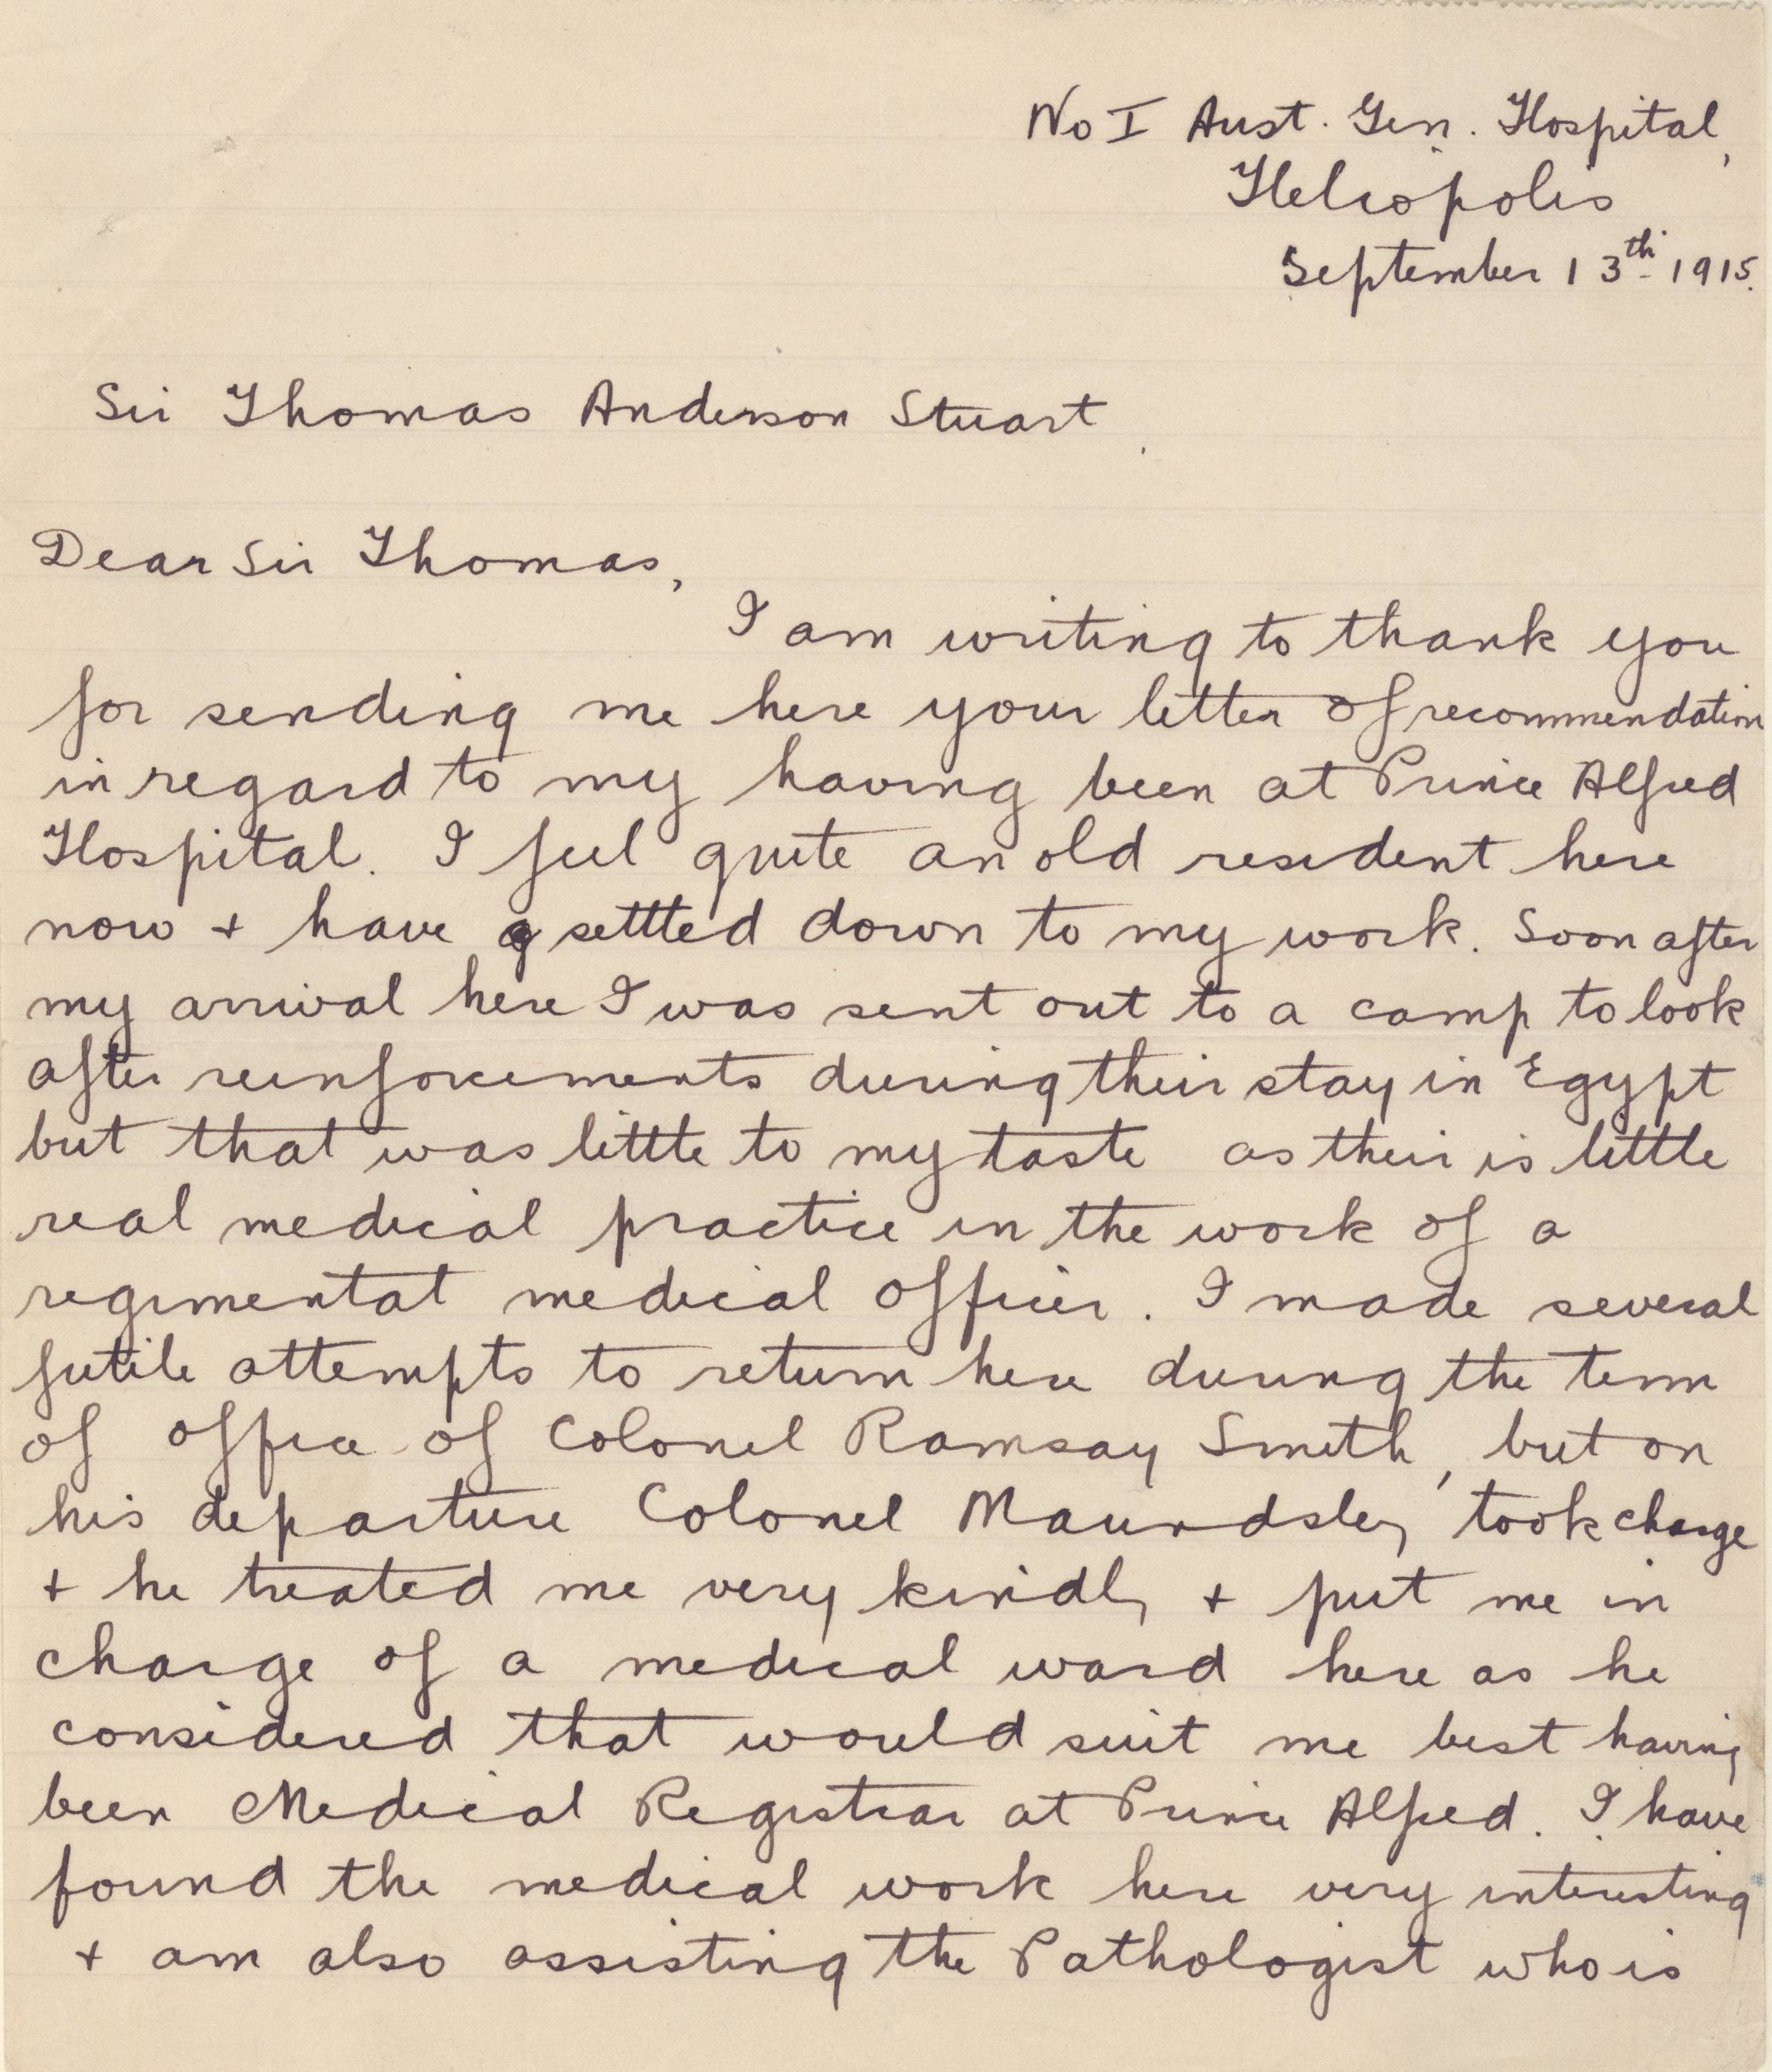 No I Aust. Gen. Hospital,
Heliopolis
September 13th 1915.
Sir Thomas Anderson Stuart.
Dear Sir Thomas,
I am writing to thank you
for sending me here your letter of recommendation
in regard to my having been at Prince Alfred
Hospital. I feel quite an old resident here
now + have settled down to my work. Soon after
my arrival here I was sent out to a camp to look
after reinforcements during their stay in Egypt
but that was little to my taste as their is little
real medical practice in the work of a
regimental medical officer. I made several
futile attempts to return here during the term
of office of Colonel Ramsay Smith, but on
his departure Colonel Maundsley took charge
+ he treated me very kindly + put me in
charge of a medical ward here as he
considered that would suit me best having
been Medical Registrar at Prince Alfred. I have
found the medical work here very interesting
+ am also assisting the Pathologist who is